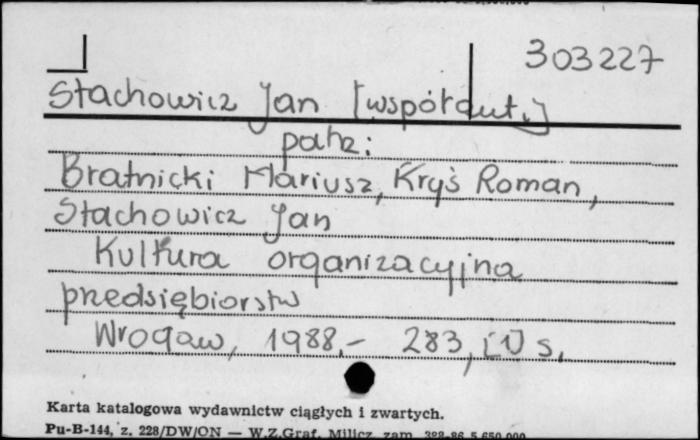 303227
Stachowicz Jan [współaut.]
patrz:
Bratnicki Mariusz, Kryś Roman,
Stachowicz Jan
Kultura organizacyjna
przedsiębiorstw
Wrocław, 1988.- 283, [1] s.
Karta katalogowa wydawnictw ciągłych i zwartych.
Pu-B-144, z. 228/DW/ON — W.Z.Graf. Milicz, zam. 328-86 5.650.000